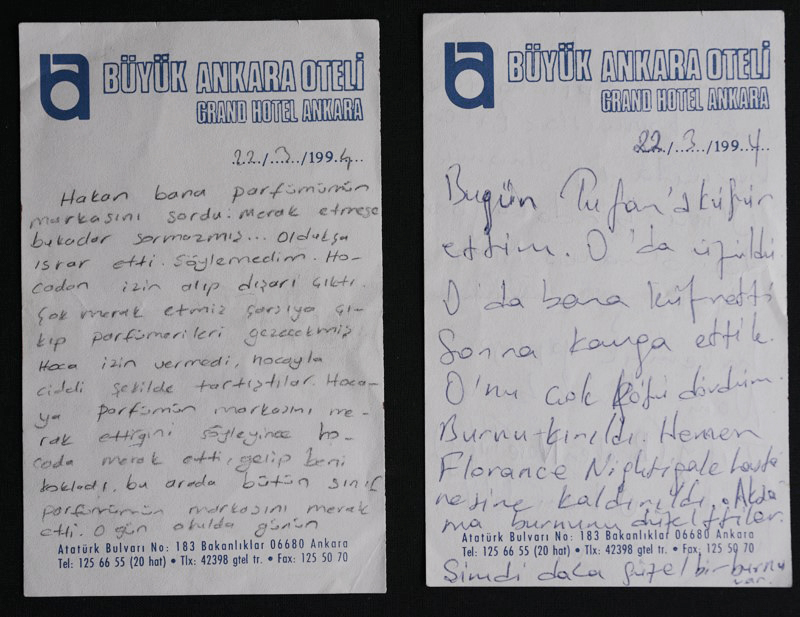 BÜYÜK ANKARA OTELİ
GRAND HOTEL ANKARA
22./.3./1994
Hakan bana parfümünün
markasını sordu. Merak etmese
bukadar sormazmış... Oldukça
ısrar etti. Söylemedim. Ho-
cadan izin alıp dışarı çıktı.
Çok merak etmiş çarşıya çı-
kıp parfümerileri gezecekmiş.
Hoca izin vermedi, hocayla
ciddi şekilde tartıştılar. Hoca-
ya parfümün markasını me-
rak ettiğini söyleyince ho-
cada merak etti, gelip beni
kokladı, bu arada bütün sınıf
parfümümün markasını merak
etti. O gün okulda günün
Atatürk Bulvarı No: 183 Bakanlıklar 06680 Ankara
Tel: 125 66 55 (20 hat) • Tlx: 42398 gtel tr. • Fax: 125 50 70
BÜYÜK ANKARA OTELİ
GRAND HOTEL ANKARA
22./.3./1994
Bugün Tufan'a küfür
ettim. O'da üzüldü.
O'da bana küfretti
Sonra kavga ettik.
O'nu çok kötü dövdüm.
Burnu kırıldı. Hemen
Florance Nightigale hasta
nesine kaldırıldı. Akda
ma burnunu düzelttiler.
Atatürk Bulvarı No: 183 Bakanlıklar 06680 Ankara
Tel: 125 66 55 (20 hat) • Tlx: 42398 gtel tr. • Fax: 125 50 70
Şimdi daha güzel bir burnu
var.